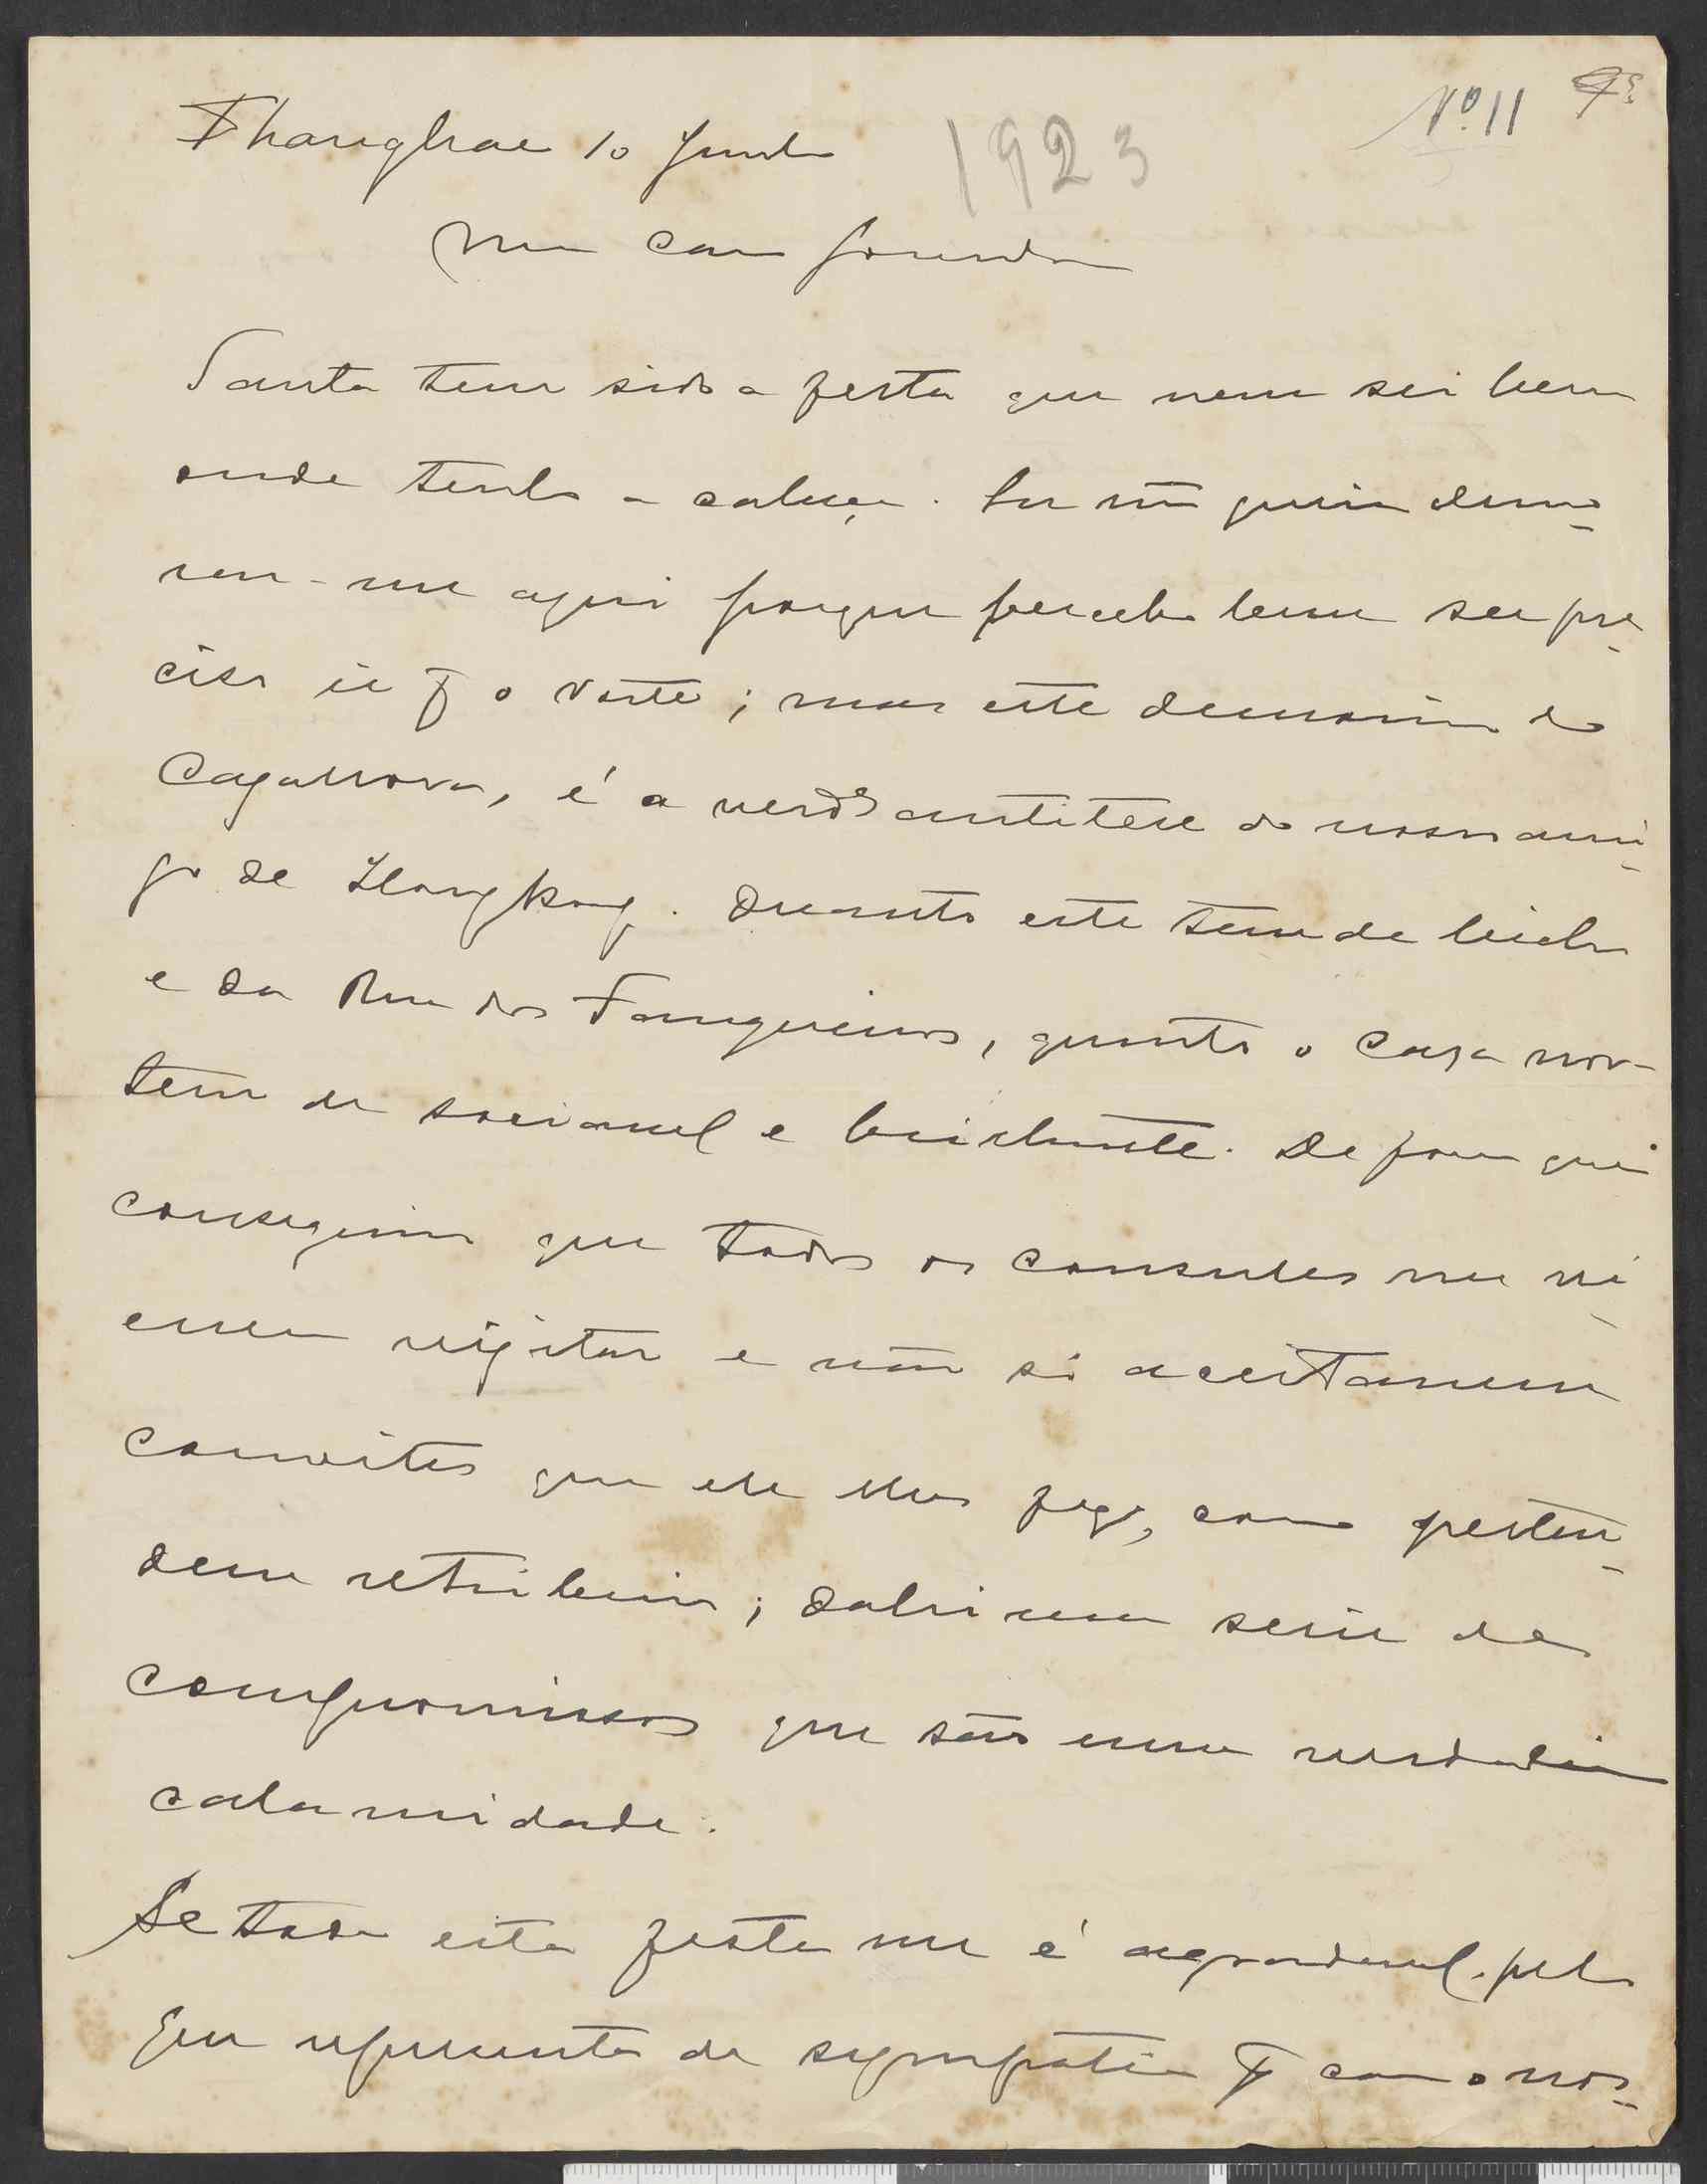 Nº 11
Shanghae 10 Junho 1923
Meu caro
Tanta tem sido a festa que nem sei bem
onde tenho a cabeça. Eu não queria demo-
rar-me aqui porque percebo bem ser pre-
ciso ir p.ª o Norte; mas este demonio do
Cazanova, é a verd.e antitese do nosso ami-
go de Hongkong. Quanto este tem de bicho
e da Rua dos Fanqueiros, quanto o Cazanova
tem de sociavel e brilhante. De forma que
conseguiu que todos os consules me vi-
essem vizitar e não só aceitarem
convites que ele lhes fez, como preten-
dem retribuir; dahi uma serie de
compromissos que são uma verdadeira
calamidade.
Se toda esta festa me é agradavel pelo
que representa de sympatia p.ª com o nos-